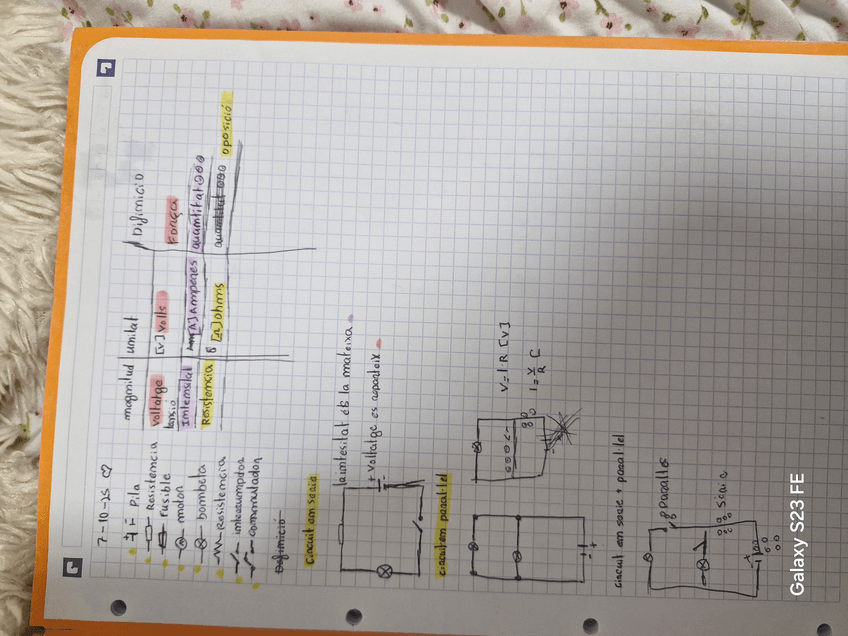 7-10-25 ♡
Pila
Resistencia
Fusible
motor
bombeta
Resistencia
interrumptor
commutador
magnitud unitat Difinició
voltatge [V] volts Força
tensio
Intensitat [A] Amperes quantitat
Resistencia [Ω] ohms quantitat oposició
Definició
Circuit en serie
la intesitat és la mateixa
voltatge es reparteix
circuit en paral·lel
V = I · R [V]
I = V/R
circuit en serie + paral·lel
Paral·lel
Serie
Galaxy S23 FE